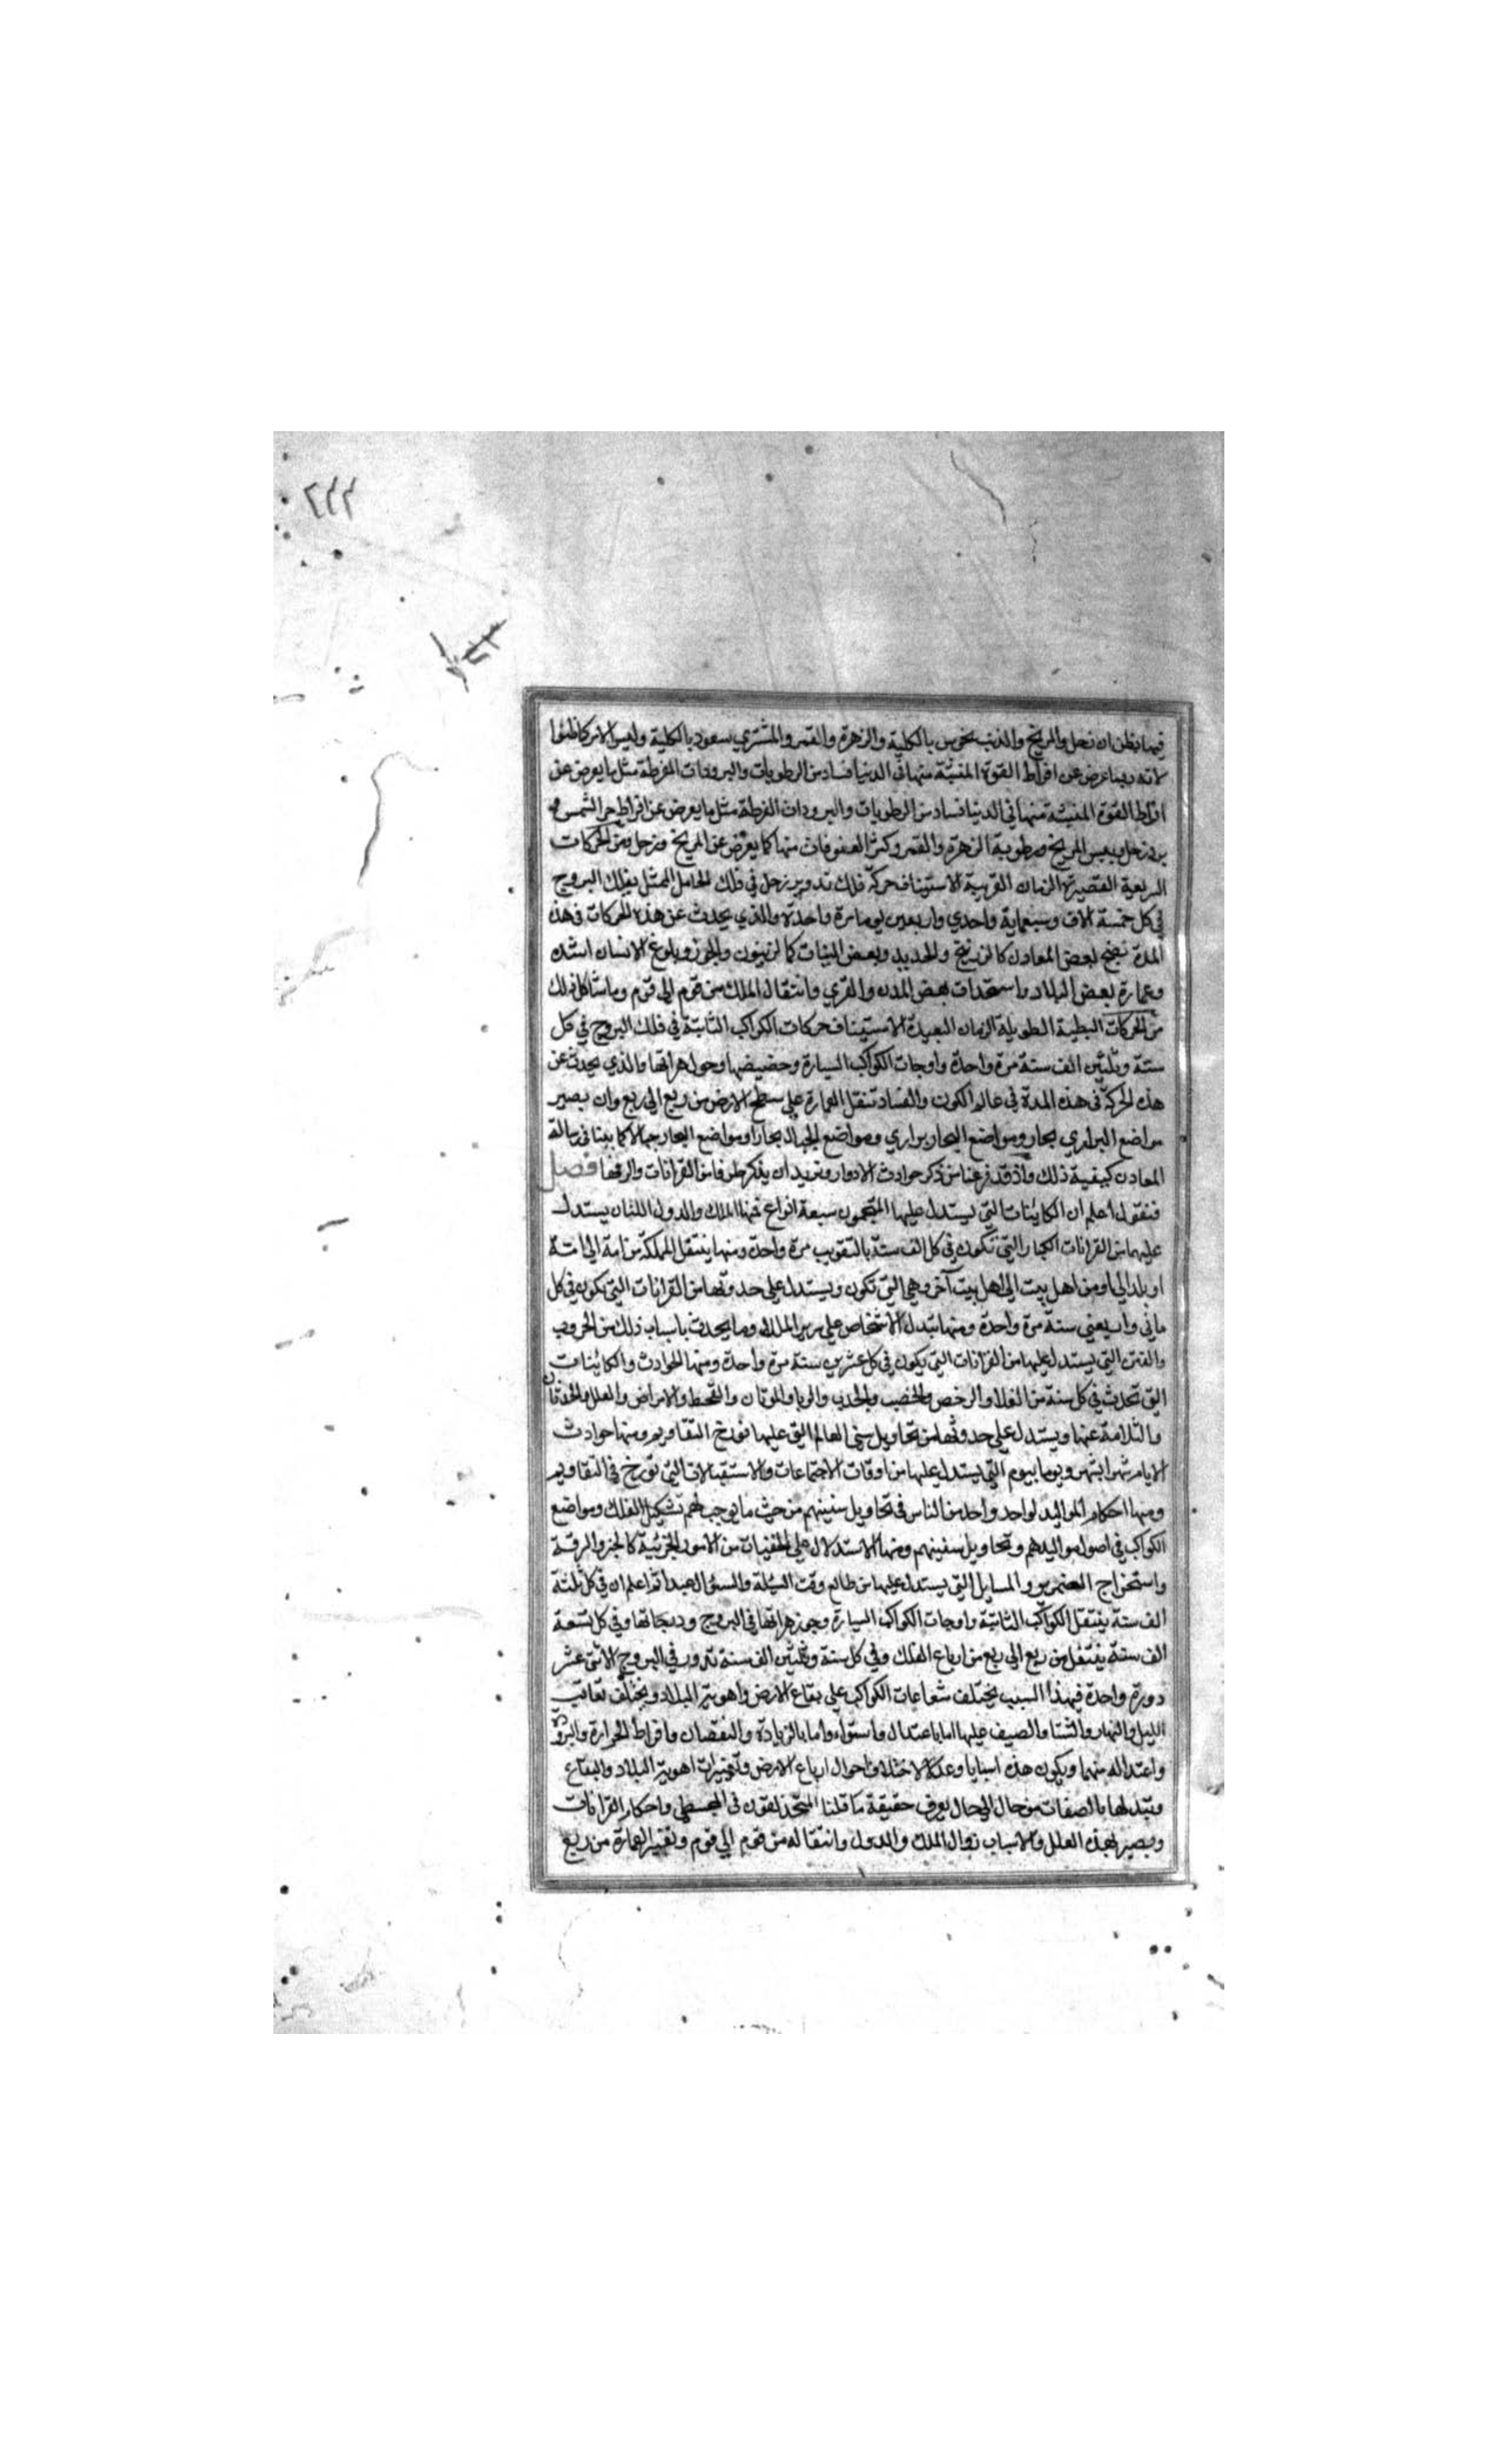 ٢٢٢
فيما يظن ان زحل والمريخ والذنب نحوس بالكلية والزهرة والقمر والمشتري سعود بالكلية وليس الامر كما ظنوا
لانه ربما عرض عن افراط القوة المنبثة منها في الدنيا فساد من الرطوبات والبرودات المفرطة مثل ما يعرض عن
افراط القوة المنبثة منها في الدنيا فساد من الرطوبات والبرودات المفرطة مثل ما يعرض عن افراط حر الشمس و
برد زحل ويبس المريخ ورطوبة الزهرة والقمر وكثرة العفونات منها كما يعرض عن المريخ وزحل ومن الحركات
السريعة القصيرة الزمان القريبة الاستيناف حركة فلك تدوير زحل في فلك الحامل الممثل بفلك البروج
في كل خمسة الاف وسبعماية واحدي واربعين يوما مرة واحدة والذي يحدث عن هذه الحركات في هذه
المدة نضج بعض المعادن كالزرنيخ والحديد وبعض النبات كالزيتون والجوز وبلوغ الانسان اشده
وعمارة بعض البلاد واستحداث بعض المدن والقري وانتقال الملك من قوم الي قوم وما شاكل ذلك
من الحركات البطية الطويلة الزمان البعيدة الاستيناف حركات الكواكب الثابتة في فلك البروج في كل
ستة وثلثين الف سنة مرة واحدة واوجات الكواكب السيارة وحضيضها وجوزهراتها والذي يحدث عن
هذه الحركة في هذه المدة في عالم الكون والفساد تنقل العمارة علي سطح الارض من ربع الي ربع وان يصير
مواضع البراري بحار ومواضع البحار براري ومواضع الجبال بحارا ومواضع البحار جبالا كما بينا في رسالة
المعادن كيفية ذلك واذ قد فرغنا من ذكر حوادث الادوار ونريد ان يذكر طرفا من القرانات والرفها فصل
فنقول اعلم ان الكائنات التي يستدل عليها المنجمون سبعة انواع فمنها الملك والدول اللتان يستدل
عليهما من القرانات الكبار التي تكون في كل الف سنة بالتقريب مرة واحدة ومنها ينتقل المملكة من امة الي امة
او بلد الي او من اهل بيت الي اهل بيت آخر وهي التي تكون ويستدل علي حدوثها من القرانات التي تكون في كل
ماتي واربعين سنة مرة واحدة ومنها تبدل الاشخاص علي سرير الملك وما يحدث باسباب ذلك من الحروب
والفتن التي يستدل عليها من القرانات التي يكون في كل عشرين سنة مرة واحدة ومنها الحوادث والكائينات
التي تحدث في كل سنة من الغلا والرخص والخصب والجدب والوبا والموتان والقحط والامراض والعلل والحدثان
والسلامة عنها ويستدل علي حدوثها من تحاويل سني العالم التي عليها تورخ التقاويم ومنها حوادث
الايام شهرا بشهر ويوما بيوم التي يستدل عليها من اوقات الاجتماعات والاستقبالات التي تورخ في التقاويم
ومنها احكام المواليد لواحد واحد من الناس في تحاويل سنينهم من حيث ما يوجب لهم تشكيل الفلك ومواضع
الكواكب في اصول مواليدهم وتحاويل سنينهم ومنها الاستدلال علي الخفيات من الامور الجزئية كالخبز والسرقة
واستخراج الضمير والمسايل التي يستدل عليها من طالع وقت المسئلة والسئوال عنها ثم اعلم ان في كل ثلثة
الف سنة ينتقل الكواكب الثابتة واوجات الكواكب السيارة وجوزهراتها في البروج ودرجاتها وفي كل تسعة
الف سنة ينتقل من ربع الي ربع من ارباع الفلك وفي كل ستة وثلثين الف سنة تدور في البروج الاثني عشر
دورة واحدة فبهذا السبب يختلف شعاعات الكواكب علي بقاع الارض واهوية البلاد ويختلف تعاقب
الليل والنهار والشتا والصيف عليها اما باعتدال واستواء واما بالزيادة والنقصان وافراط الحرارة والبرودة
واعتداله منهما ويكون هذه اسبابا وعللا لاختلاف احوال ارباع الارض وتغييرات اهوية البلاد والبقاع
وتبدلها بالصفات من حال الي حال يعرف حقيقة ما قلنا المتحذلقون في المجسطي واحكام القرانات
ويصير بهذه العلل والاسباب زوال الملك والدول وانتقاله من قوم الي قوم وتغيير العمارة من ربع